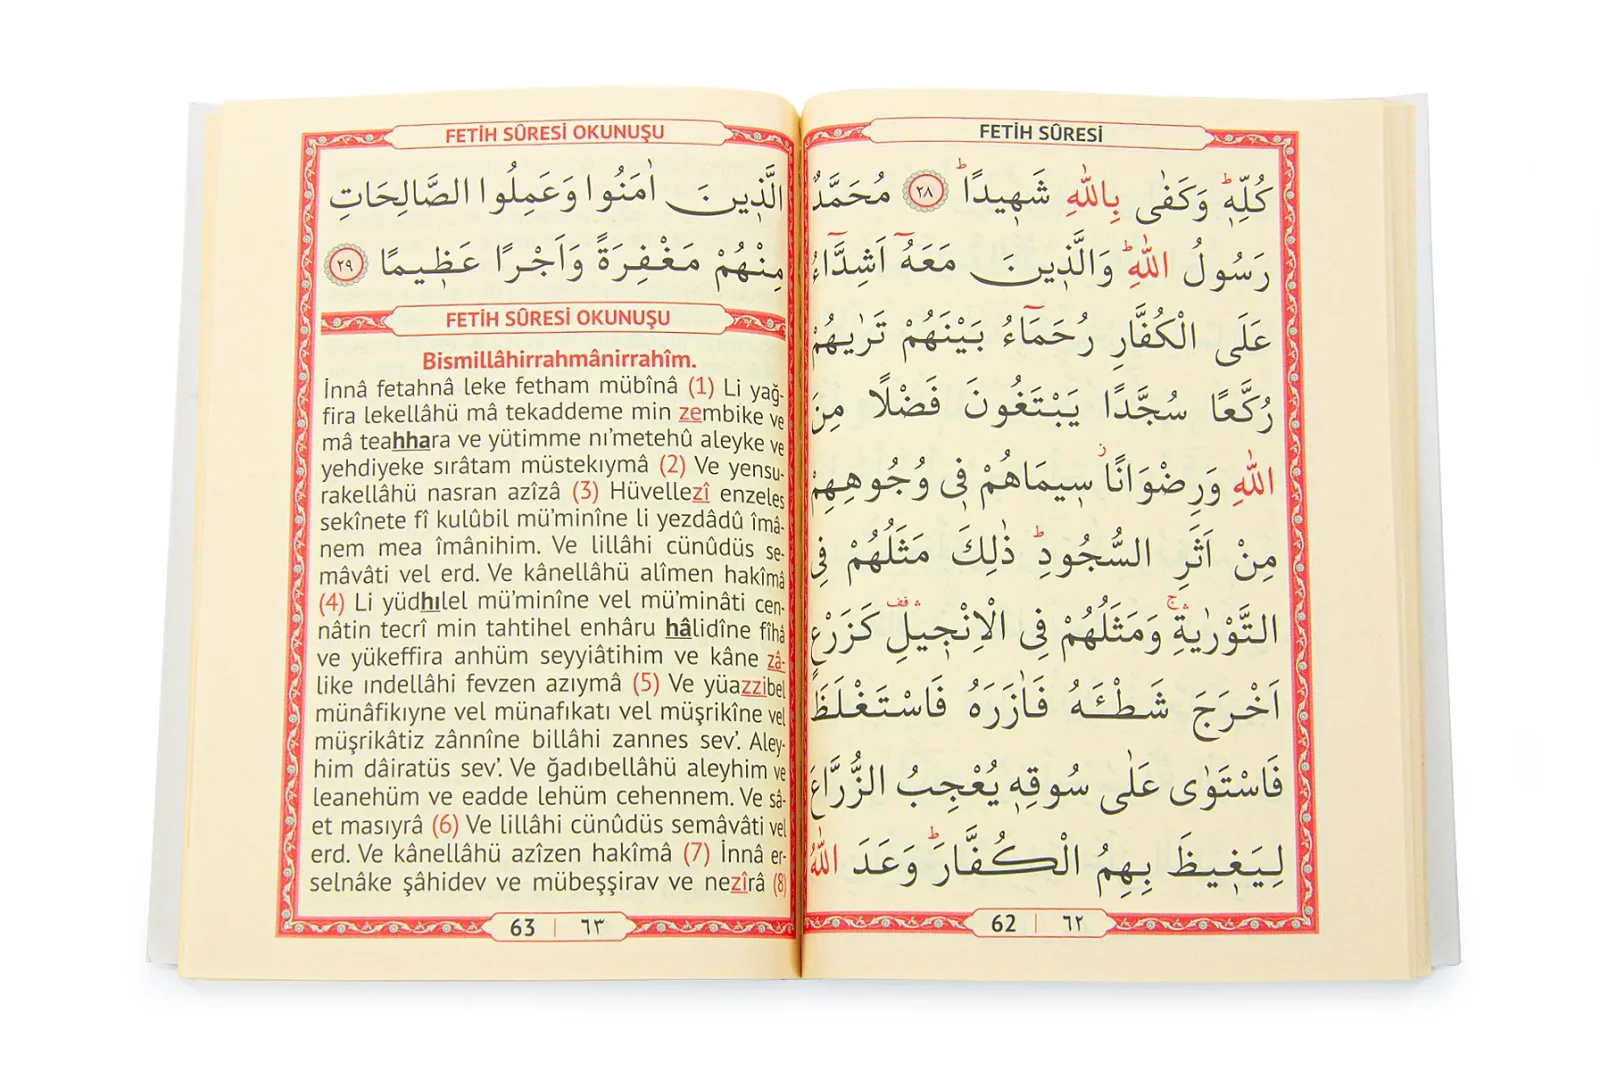 FETİH SÛRESİ
كُلِّه۪ۜ وَكَفٰى بِاللّٰهِ شَه۪يدًاۜ ﴿٢٨﴾ مُحَمَّدٌ
رَسُولُ اللّٰهِۜ وَالَّذ۪ينَ مَعَهُٓ اَشِدَّٓاءُ
عَلَى الْكُفَّارِ رُحَمَٓاءُ بَيْنَهُمْ تَرٰيهُمْ
رُكَّعًا سُجَّدًا يَبْتَغُونَ فَضْلًا مِنَ
اللّٰهِ وَرِضْوَانًاۘ س۪يمَاهُمْ ف۪ي وُجُوهِهِمْ
مِنْ اَثَرِ السُّجُودِۜ ذٰلِكَ مَثَلُهُمْ فِي
التَّوْرٰيةِۚ وَمَثَلُهُمْ فِي الْاِنْج۪يلِ۠ كَزَرْعٍ
اَخْرَجَ شَطْـَٔهُ فَاٰزَرَهُ فَاسْتَغْلَظَ
فَاسْتَوٰى عَلٰى سُوقِه۪ يُعْجِبُ الزُّرَّاعَ
لِيَغ۪يظَ بِهِمُ الْكُفَّارَۜ وَعَدَ اللّٰهُ
62 | ٦٢
FETİH SÛRESİ OKUNUŞU
الَّذ۪ينَ اٰمَنُوا وَعَمِلُوا الصَّالِحَاتِ
مِنْهُمْ مَغْفِرَةً وَاَجْرًا عَظ۪يمًا ﴿٢٩﴾
FETİH SÛRESİ OKUNUŞU
Bismillâhirrahmânirrahîm.
İnnâ fetahnâ leke fetham mübînâ (1) Li yağ-
fira lekellâhü mâ tekaddeme min zembike ve
mâ teahhara ve yütimme nı'metehû aleyke ve
yehdiyeke sırâtam müstekıymâ (2) Ve yensu-
rakellâhü nasran azîzâ (3) Hüvellezî enzeles
sekînete fî kulûbil mü'minîne li yezdâdû îmâ-
nem mea îmânihim. Ve lillâhi cünûdüs se-
mâvâti vel erd. Ve kânellâhü alîmen hakîmâ
(4) Li yüdhılel mü'minîne vel mü'minâti cen-
nâtin tecrî min tahtihel enhâru hâlidîne fîhâ
ve yükeffira anhüm seyyiâtihim ve kâne zâ-
like ındellâhi fevzen azıymâ (5) Ve yüazzibel
münâfikıyne vel münafıkatı vel müşrikîne vel
müşrikâtiz zânnîne billâhi zannes sev'. Aley-
him dâiratüs sev'. Ve ğadıbellâhü aleyhim ve
leanehüm ve eadde lehüm cehennem. Ve sâ-
et masıyrâ (6) Ve lillâhi cünûdüs semâvâti vel
erd. Ve kânellâhü azîzen hakîmâ (7) İnnâ er-
selnâke şâhidev ve mübeşşirav ve nezîrâ (8)
63 | ٦٣